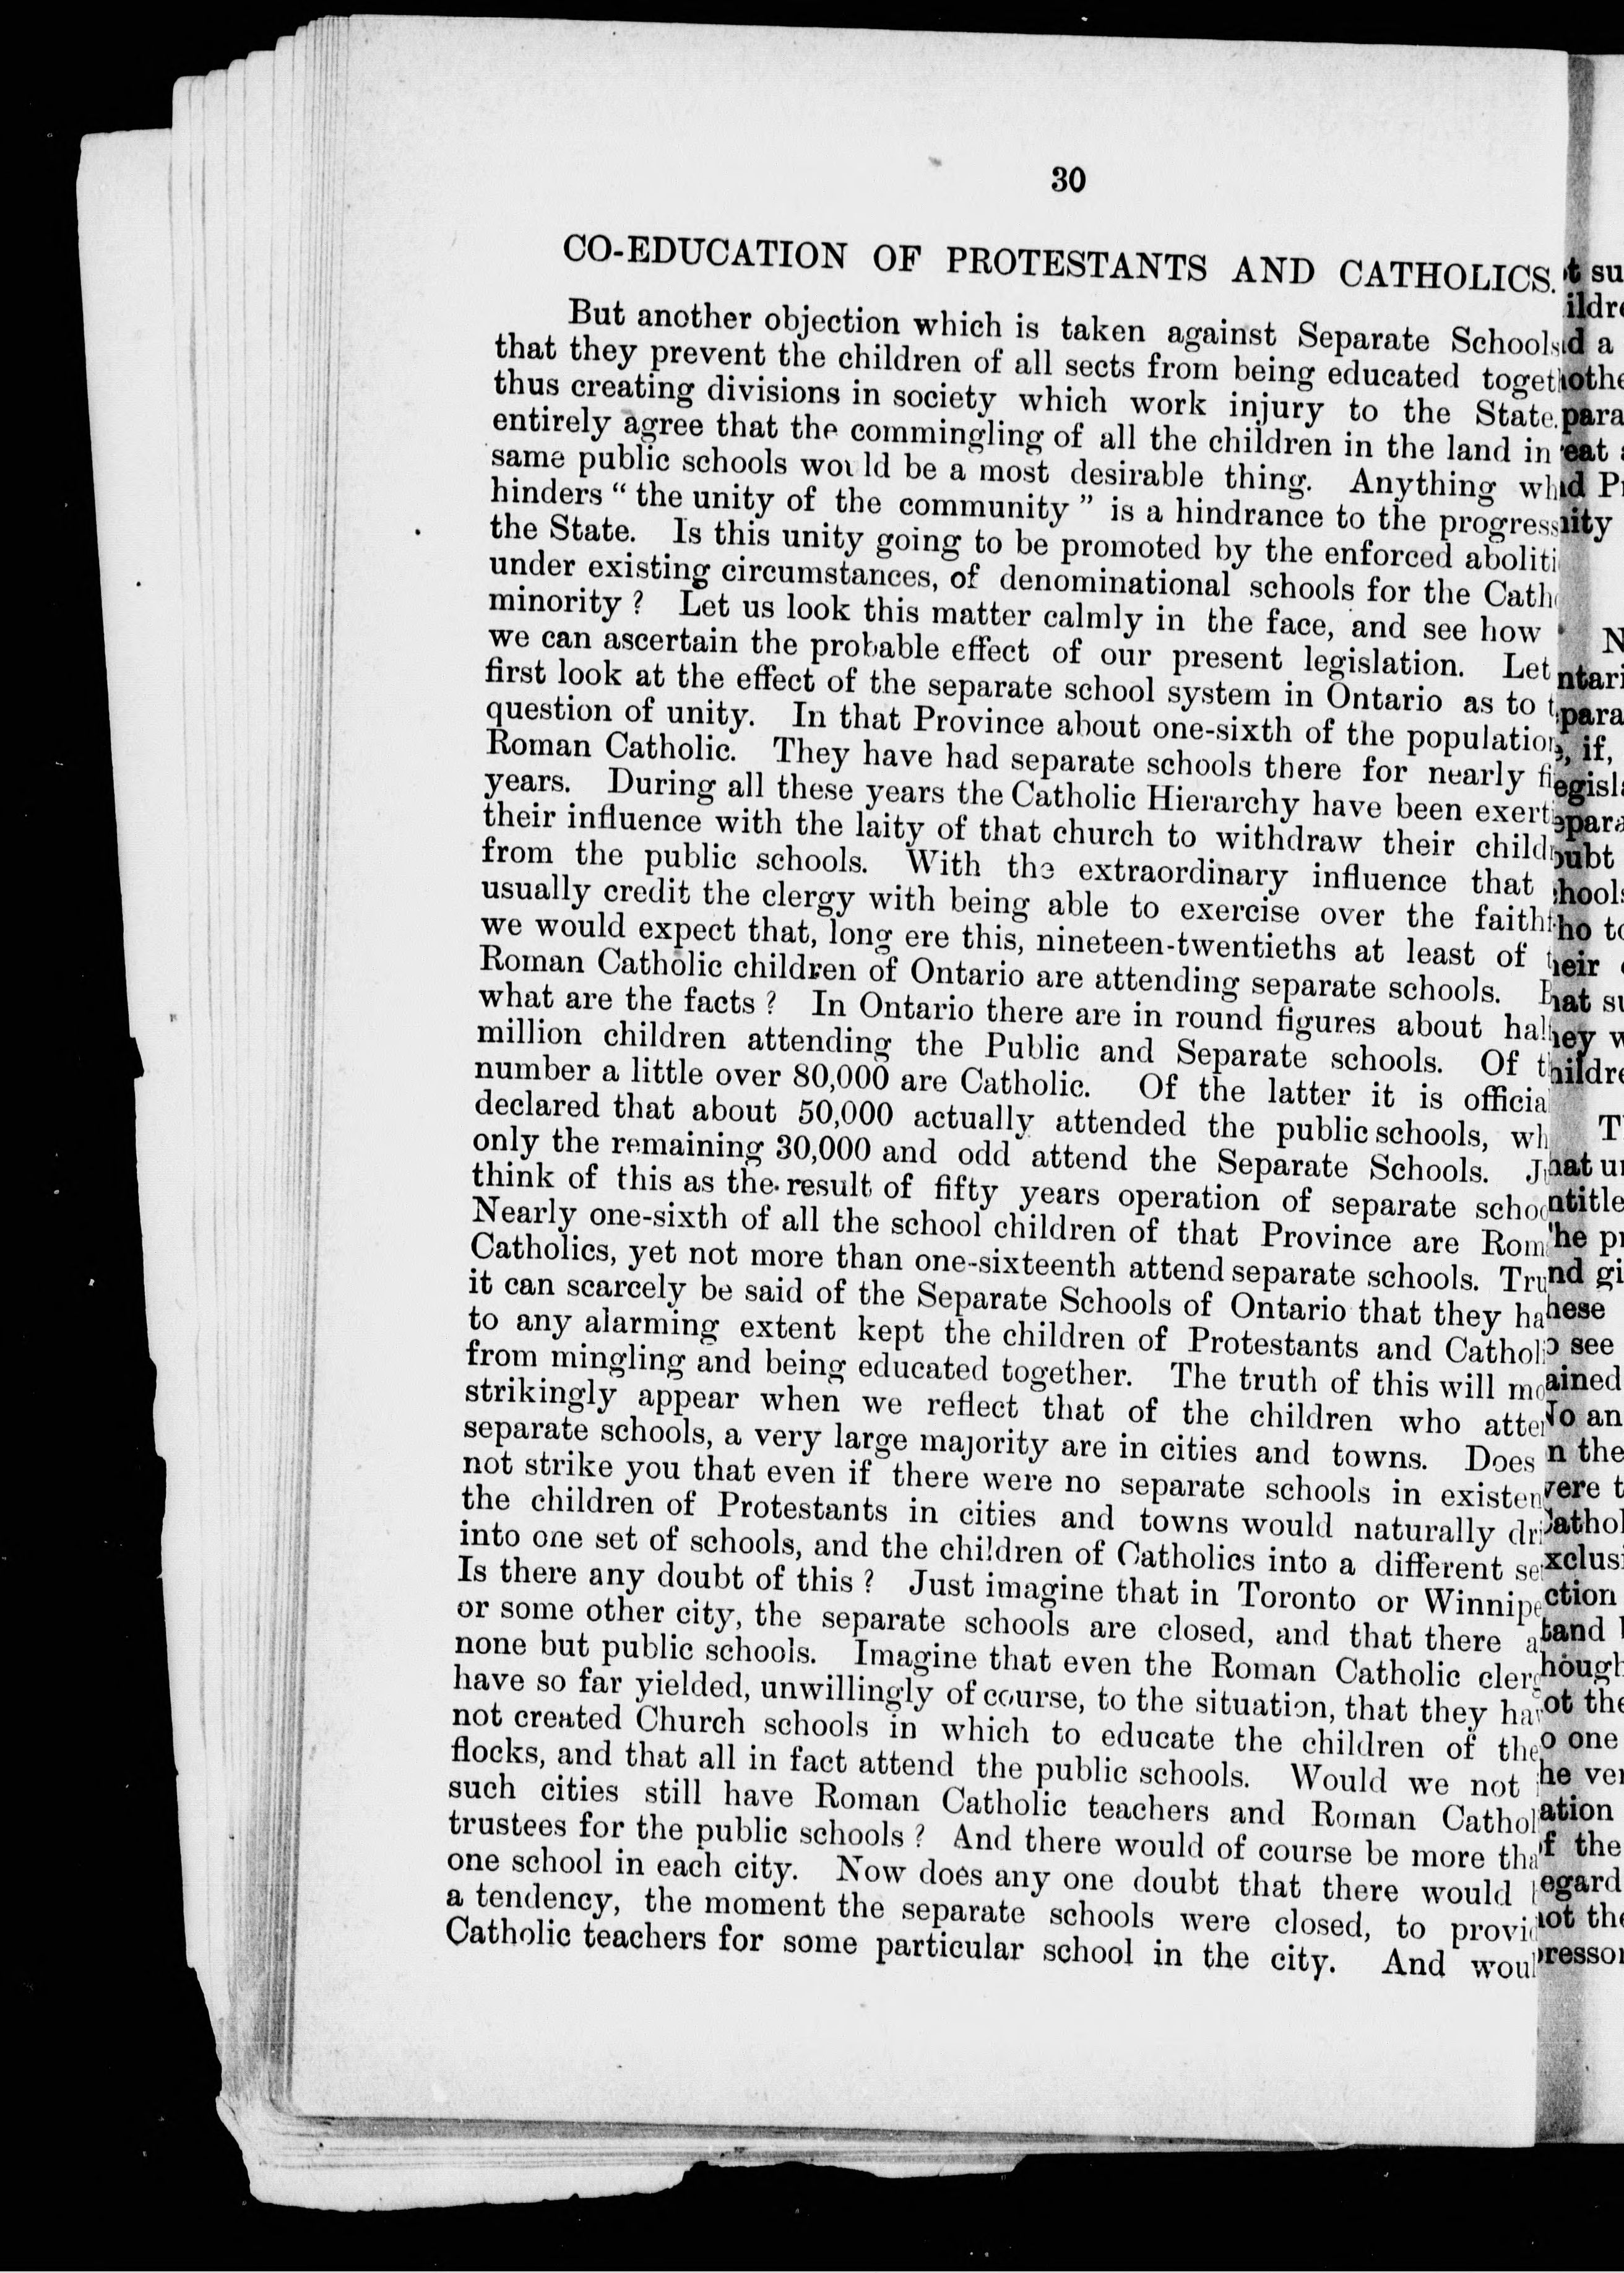 30
CO-EDUCATION OF PROTESTANTS AND CATHOLICS.
But another objection which is taken against Separate Schools
that they prevent the children of all sects from being educated
thus creating divisions in society which work injury to the State.
entirely agree that the commingling of all the children in the land in
same public schools would be a most desirable thing. Anything
hinders " the unity of the community " is a hindrance to the progress
the State. Is this unity going to be promoted by the enforced
under existing circumstances, of denominational schools for the
minority ? Let us look this matter calmly in the face, and see how
we can ascertain the probable effect of our present legislation. Let
first look at the effect of the separate school system in Ontario as to
question of unity. In that Province about one-sixth of the population
Roman Catholic. They have had separate schools there for nearly
years. During all these years the Catholic Hierarchy have been
their influence with the laity of that church to withdraw their
from the public schools. With the extraordinary influence that
usually credit the clergy with being able to exercise over the
we would expect that, long ere this, nineteen-twentieths at least of
Roman Catholic children of Ontario are attending separate schools.
what are the facts ? In Ontario there are in round figures about
million children attending the Public and Separate schools. Of
number a little over 80,000 are Catholic. Of the latter it is
declared that about 50,000 actually attended the public schools,
only the remaining 30,000 and odd attend the Separate Schools.
think of this as the result of fifty years operation of separate
Nearly one-sixth of all the school children of that Province are
Catholics, yet not more than one-sixteenth attend separate schools.
it can scarcely be said of the Separate Schools of Ontario that they
to any alarming extent kept the children of Protestants and
from mingling and being educated together. The truth of this will
strikingly appear when we reflect that of the children who
separate schools, a very large majority are in cities and towns. Does
not strike you that even if there were no separate schools in
the children of Protestants in cities and towns would naturally
into one set of schools, and the children of Catholics into a different
Is there any doubt of this ? Just imagine that in Toronto or
or some other city, the separate schools are closed, and that there
none but public schools. Imagine that even the Roman Catholic
have so far yielded, unwillingly of course, to the situation, that they
not created Church schools in which to educate the children of
flocks, and that all in fact attend the public schools. Would we not
such cities still have Roman Catholic teachers and Roman
trustees for the public schools ? And there would of course be more
one school in each city. Now does any one doubt that there would
a tendency, the moment the separate schools were closed, to
Catholic teachers for some particular school in the city. And